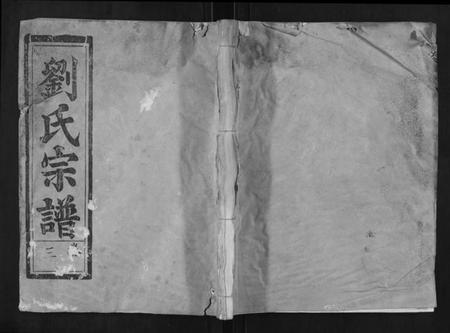 劉氏宗譜
二